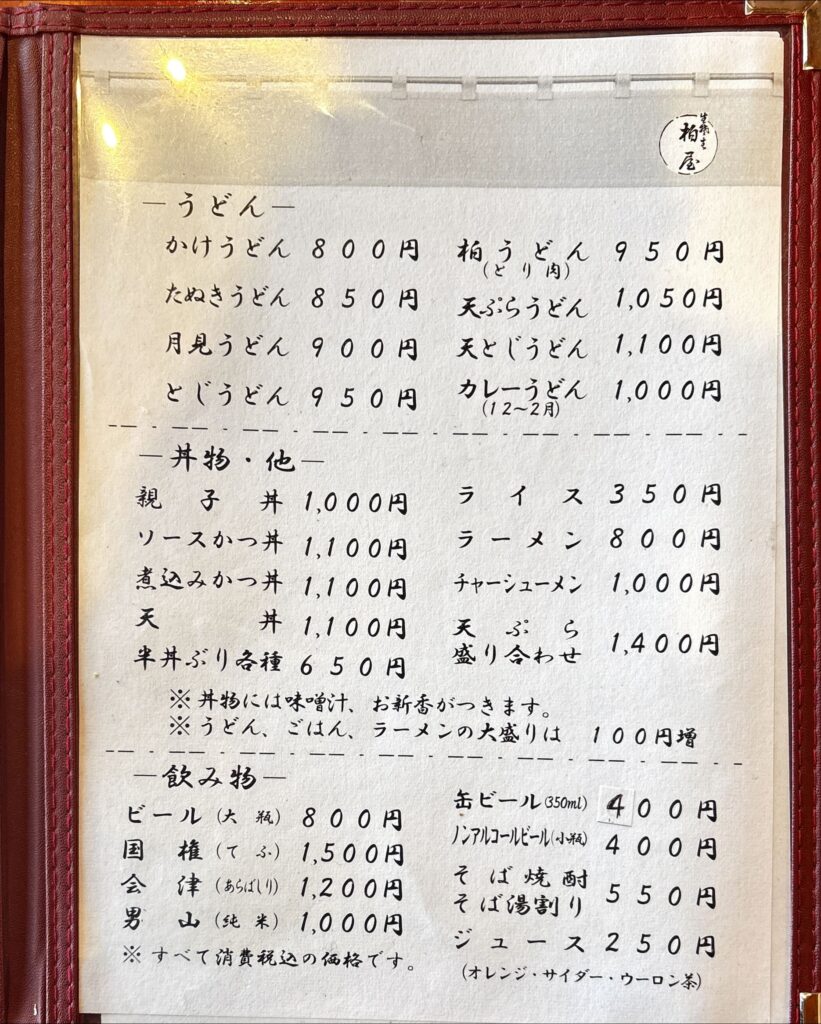 生蕎麦
柏屋
―うどん―
かけうどん 800円
たぬきうどん 850円
月見うどん 900円
とじうどん 950円
柏うどん 950円
(とり肉)
天ぷらうどん 1,050円
天とじうどん 1,100円
カレーうどん 1,000円
(12～2月)
―丼物・他―
親子丼 1,000円
ソースかつ丼 1,100円
煮込みかつ丼 1,100円
天丼 1,100円
半丼ぶり各種 650円
ライス 350円
ラーメン 800円
チャーシューメン 1,000円
天ぷら
盛り合わせ 1,400円
※丼物には味噌汁、お新香がつきます。
※うどん、ごはん、ラーメンの大盛りは 100円増
―飲み物―
ビール(大瓶) 800円
国権(てふ) 1,500円
会津(あらばしり) 1,200円
男山(純米) 1,000円
※すべて消費税込の価格です。
缶ビール(350ml) 400円
ノンアルコールビール(小瓶) 400円
そば焼酎
そば湯割り 550円
ジュース 250円
(オレンジ・サイダー・ウーロン茶)